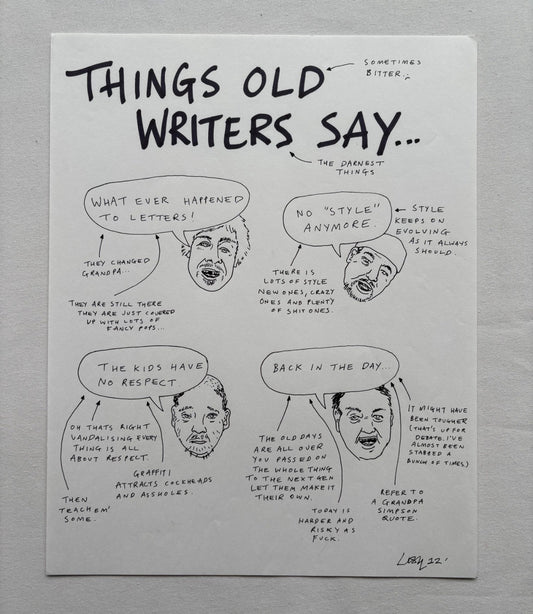 THINGS OLD
WRITERS SAY...
SOMETIMES
BITTER.
THE DARNEST
THINGS
WHAT EVER HAPPENED
TO LETTERS!
THEY CHANGED
GRANDPA...
THEY ARE STILL THERE
THEY ARE JUST COVERED
UP WITH LOTS OF
FANCY POPS...
NO "STYLE"
ANYMORE.
STYLE
KEEPS ON
EVOLVING
AS IT ALWAYS
SHOULD.
THERE IS
LOTS OF STYLE
NEW ONES, CRAZY
ONES AND PLENTY
OF SHIT ONES.
THE KIDS HAVE
NO RESPECT
OH THATS RIGHT
VANDALISING EVERY
THING IS ALL
ABOUT RESPECT.
GRAFFITI
ATTRACTS COCKHEADS
AND ASSHOLES.
THEN
TEACH EM'
SOME.
BACK IN THE DAY...
THE OLD DAYS
ARE ALL OVER
YOU PASSED ON
THE WHOLE THING
TO THE NEXT GEN
LET THEM MAKE IT
THEIR OWN.
TODAY IS
HARDER AND
RISKY AS
FUCK.
REFER TO
A GRANDPA
SIMPSON
QUOTE.
IT MIGHT HAVE
BEEN TOUGHER
(THAT'S UP FOR
DEBATE. I'VE
ALMOST BEEN
STABBED A
BUNCH OF TIMES)
22'